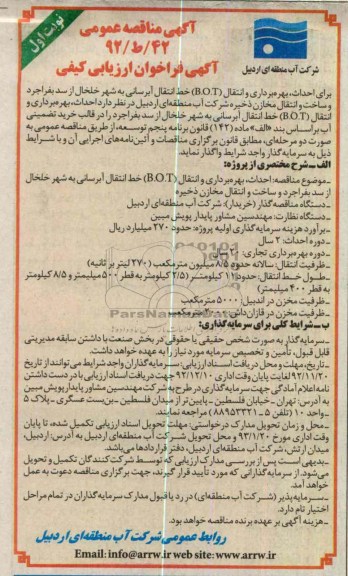 نوبت اول
آگهی مناقصه عمومی
۴۲/ط/۹۲
آگهی فراخوان ارزیابی کیفی
شرکت آب منطقه‌ای اردبیل
برای احداث، بهره‌برداری و انتقال (B.O.T) خط انتقال آبرسانی به شهر خلخال از سد بفراجرد
و ساخت و انتقال مخازن ذخیره شرکت آب منطقه‌ای اردبیل در نظر دارد احداث، بهره‌برداری و
انتقال (B.O.T) خط انتقال آبرسانی به شهر خلخال از سد بفراجرد را در قالب خرید تضمینی
آب براساس بند «الف» ماده (۱۴۲) قانون برنامه پنجم توسعه، از طریق مناقصه عمومی به
صورت دو مرحله‌ای، مطابق قانون برگزاری مناقصات و آئین‌نامه‌های اجرایی آن و با شرایط
ذیل به سرمایه‌گذار واجد شرایط واگذار نماید.
الف ـ شرح مختصری از پروژه:
ـ موضوع مناقصه: احداث، بهره‌برداری و انتقال (B.O.T) خط انتقال آبرسانی به شهر خلخال
از سد بفراجرد و ساخت و انتقال مخازن ذخیره
ـ دستگاه مناقصه‌گذار (خریدار): شرکت آب منطقه‌ای اردبیل
ـ دستگاه نظارت: مهندسین مشاور پایدار پویش مبین
ـ برآورد هزینه سرمایه‌گذاری اولیه پروژه: حدود ۲۷۰ میلیارد ریال
ـ دوره احداث: ۲ سال
ـ دوره بهره‌برداری تجاری: سال
ـ ظرفیت انتقال: سالانه حدود ۸/۵ میلیون مترمکعب (۲۷۰ لیتر بر ثانیه)
ـ طول خط انتقال: حدود ۱۱ کیلومتر (۲/۵ کیلومتر به قطر ۵۰۰ میلیمتر و ۸/۵ کیلومتر
به قطر ۴۰۰ میلیمتر)
ـ ظرفیت مخزن در اندبیل: ۵۰۰۰ مترمکعب
ـ ظرفیت مخزن در مترمکعب
ب ـ شرایط کلی برای سرمایه‌گذاری:
ـ سرمایه‌گذار به صورت شخص حقیقی یا حقوقی در بخش صنعت با داشتن سابقه مدیریتی
قابل قبول، تأمین و تخصیص سرمایه مورد نیاز را به عهده خواهد داشت.
ـ تاریخ، مهلت و محل دریافت اسناد ارزیابی: سرمایه‌گذاران واجد شرایط می‌توانند از تاریخ
لغایت پایان وقت اداری ۹۲/۱۲/۱۰ جهت دریافت اسناد ارزیابی با در دست داشتن
نامه اعلام آمادگی جهت سرمایه‌گذاری در طرح به شرکت مهندسین مشاور پایدار پویش مبین
به آدرس: تهران ـ خیابان فلسطین ـ پایین‌تر از میدان فلسطین ـ بن‌بست عسگری ـ پلاک ۵
ـ واحد ۱۰ (تلفن ۵ ـ ۸۸۹۵۳۳۲۱) مراجعه نمایند.
ـ محل و زمان تحویل مدارک درخواستی: مهلت تحویل اسناد ارزیابی تکمیل شده، تا پایان
وقت اداری مورخ ۹۳/۱/۲۰ و محل تحویل شرکت آب منطقه‌ای اردبیل به آدرس: اردبیل،
میدان ارتش، شرکت آب منطقه‌ای اردبیل، دفتر قراردادها می‌باشد.
ـ بدیهی است پس از بررسی مدارک ارزیابی که توسط شرکت‌کنندگان تکمیل و تحویل
می‌شود، از سرمایه‌گذارانی که مورد تأیید قرار گیرند، جهت برگزاری مناقصه دعوت به عمل
خواهد آمد.
ـ سرمایه‌پذیر (شرکت آب منطقه‌ای) در رد یا قبول مدارک سرمایه‌گذاران در تمام مراحل
اختیار تام دارد.
ـ هزینه آگهی بر عهده برنده مناقصه خواهد بود.
روابط عمومی شرکت آب منطقه‌ای اردبیل
Email: info@arrw.ir web site: www.arrw.ir